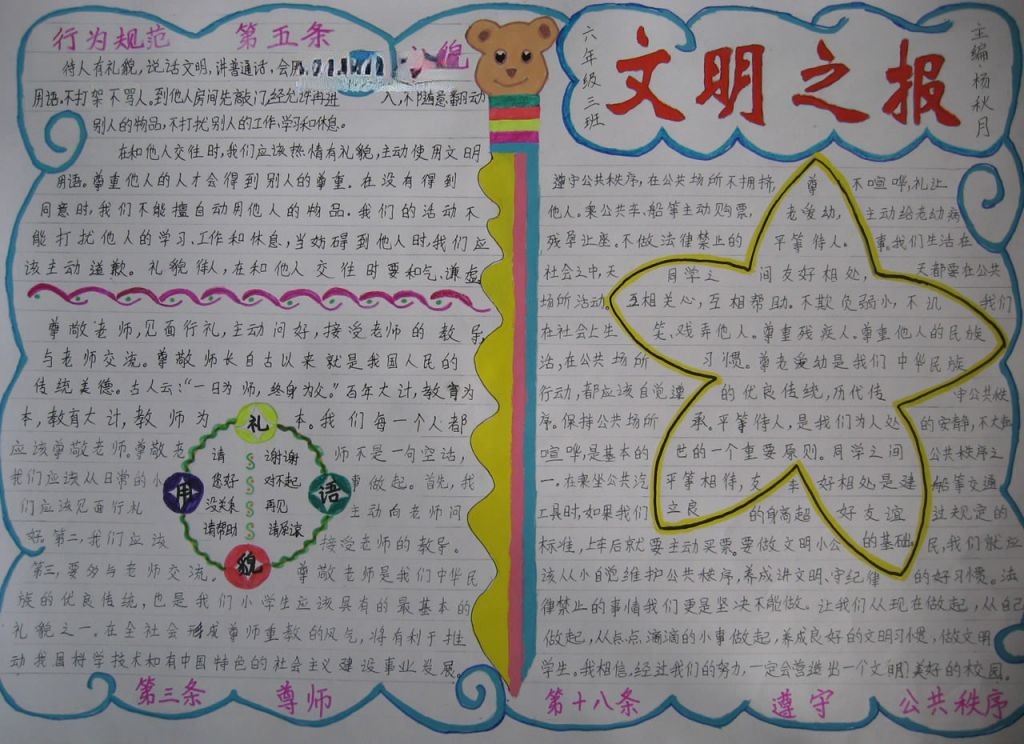 行为规范 第五条 礼貌
待人有礼貌，说话文明，讲普通话，会用
用语，不打架不骂人。到他人房间先敲门，经允许再进入，不随意翻动
别人的物品，不打扰别人的工作、学习和休息。
在和他人交往时，我们应该热情有礼貌，主动使用文明
用语。尊重他人的人才会得到别人的尊重。在没有得到
同意时，我们不能擅自动用他人的物品。我们的活动不
能打扰他人的学习、工作和休息，当妨碍到他人时，我们应
该主动道歉。礼貌待人，在和他人交往时要和气、谦虚
尊敬老师，见面行礼，主动问好，接受老师的教导，
与老师交流。尊敬师长自古以来就是我国人民的
传统美德。古人云：“一日为师，终身为父。”百年大计，教育为
本，教育大计，教师为本。我们每一个人都
应该尊敬老师。尊敬老师不是一句空话，
我们应该从日常的小事做起。首先，我
们应该见面行礼 主动向老师问
好。第二，我们应该接受老师的教导。
第三，要多与老师交流。尊敬老师是我们中华民
族的优良传统，也是我们小学生应该具有的最基本的
礼貌之一。在全社会形成尊师重教的风气，将有利于推
动我国科学技术和有中国特色的社会主义建设事业发展。
礼
貌
用
语
请 谢谢
您好 对不起
没关系 再见
请帮助 请原谅
第三条 尊师
六年级三班
文明之报
主编杨秋月
遵守公共秩序，在公共场所不拥挤，不喧哗，礼让
他人。乘公共车、船等主动购票，主动给老幼病
残孕让座。不做法律禁止的事。我们生活在
社会之中，天天都要在公共
场所活动。我们
在社会上生
活，在公共场所
行动，都应该自觉遵
中公共秩
序。保持公共场所的安静，不大起
喧哗，是基本的公共秩序之
一。在乘坐公共汽船等交通
工具时，如果我们的身高超过规定的
标准，上车后就要主动买票。要做文明小公民，我们就应
该从小自觉维护公共秩序，养成讲文明、守纪律的好习惯。法
律禁止的事情我们更是坚决不能做。让我们从现在做起，从自己
做起，从点点滴滴的小事做起，养成良好的文明习惯，做文明
学生。我相信，经过我们的努力，一定会营造出一个文明美好的校园。
尊
老爱幼，
平等待人。
同学之间友好相处，
互相关心，互相帮助。不欺负弱小，不讥
笑、戏弄他人。尊重残疾人。尊重他人的民族
习惯。尊老爱幼是我们中华民族
的优良传统，历代传
承。平等待人，是我们为人处
世的一个重要原则。同学之间
平等相待，友好相处是建
立良好友谊
的基础。
第十八条 遵守 公共秩序